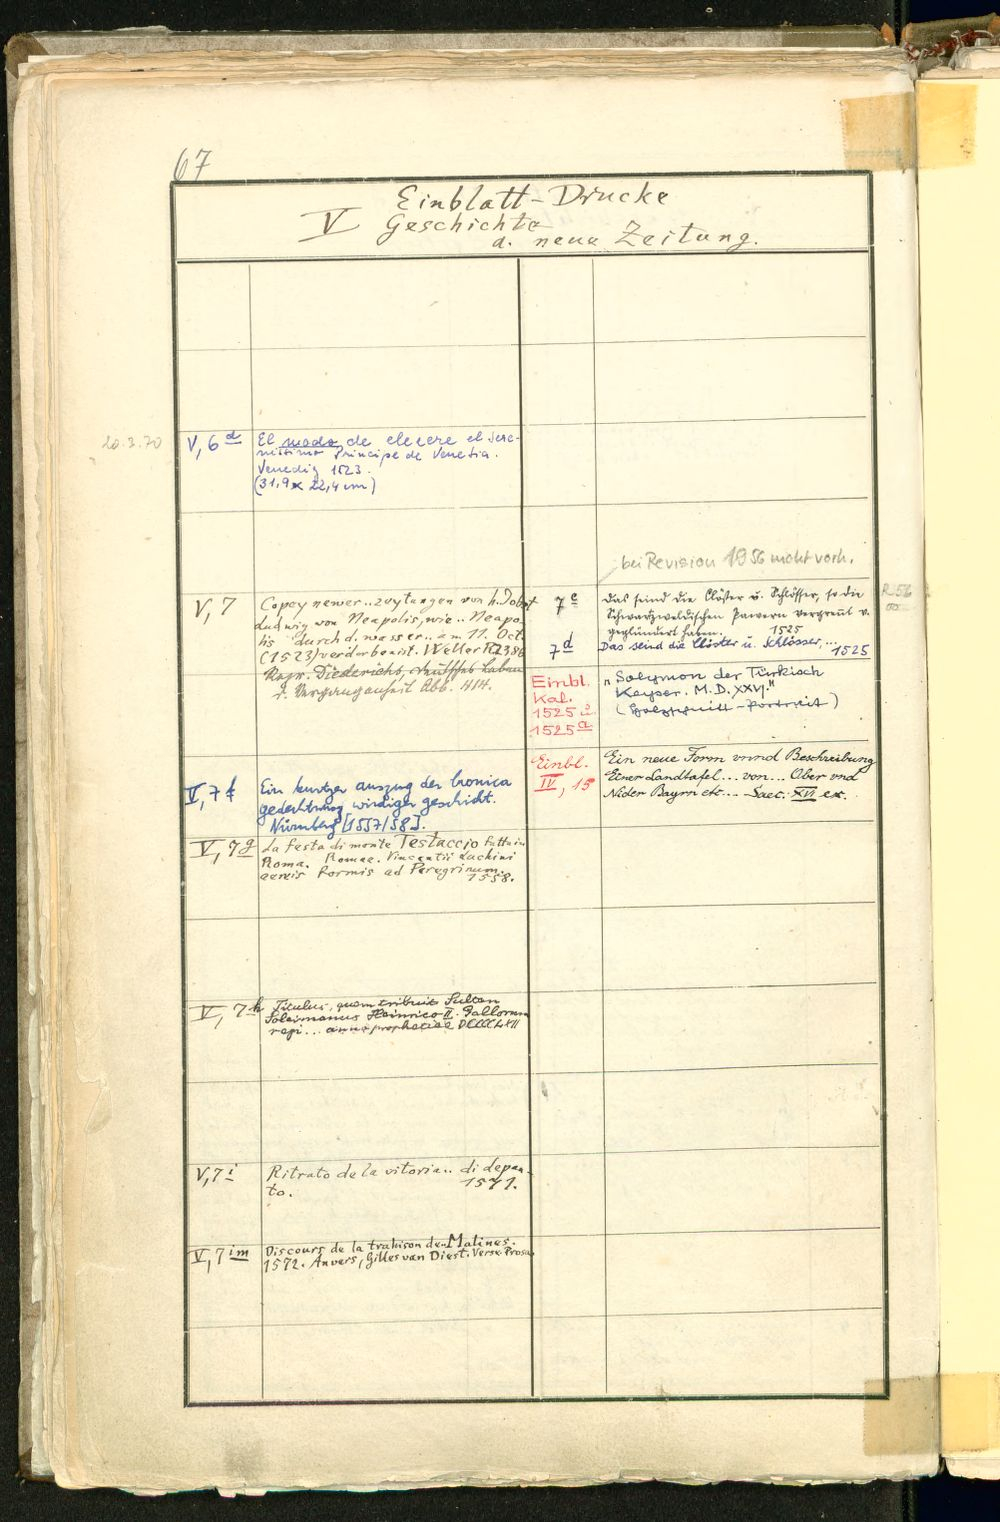 67
Einblatt-Drucke
V Geschichte
d. neue Zeitung.
20.3.70
V, 6d
El modo de elegere el sere-
nissimo Principe de Venetia.
Venedig 1523.
(31,9 x 22,4 cm)
V, 7
Copey newer .. zeytungen von h. Jobst
Ludwig von Neapolis, wie .. Neapo-
lis durch d. wasser .. am 11. Oct.
(1523) verdorben ist. Weller
Repr. Diederichs,
d. Vergangenheit Abb. 414.
V, 7f
Ein kurtzer auszug der Cronica
gedechtnus wirdiger geschicht.
Nürnberg [1557/58].
V, 7g
La festa di monte Testaccio fatta in
Roma. Romae. Vincentii Luchini
aereis formis ad Peregrinum.
1558.
V, 7h
Titulus, quem tribuit Sultan
Soleimanus Heinrico II. Gallorum
regi ... anno prophetiae DCCCCLXII
V, 7i
Ritrato de la vitoria .. di depan-
to. 1571.
V, 7im
Discours de la trahison de Malines.
1572. Anvers, Gilles van Diest. Verse Prosa.
bei Revision 1956 nicht vorh.
R 56
7c
Das seind die Clöster u. Schlösser, so die
Schwartzweldischen Pawern verprent v.
geplündert haben. 1525
7d
Das seind die Clöster u. Schlösser, ...
1525
Einbl.
Kal.
1525 u.
1525a
"Solymon der Türkisch
Keyser. M.D.XXVI."
(Holzschnitt-Portrait)
Einbl.
IV, 15
Ein neue Form vnnd Beschreibung
Einer Landtafel ... von ... Ober vnd
Nider Bayrn etc... Saec. XVI ex.